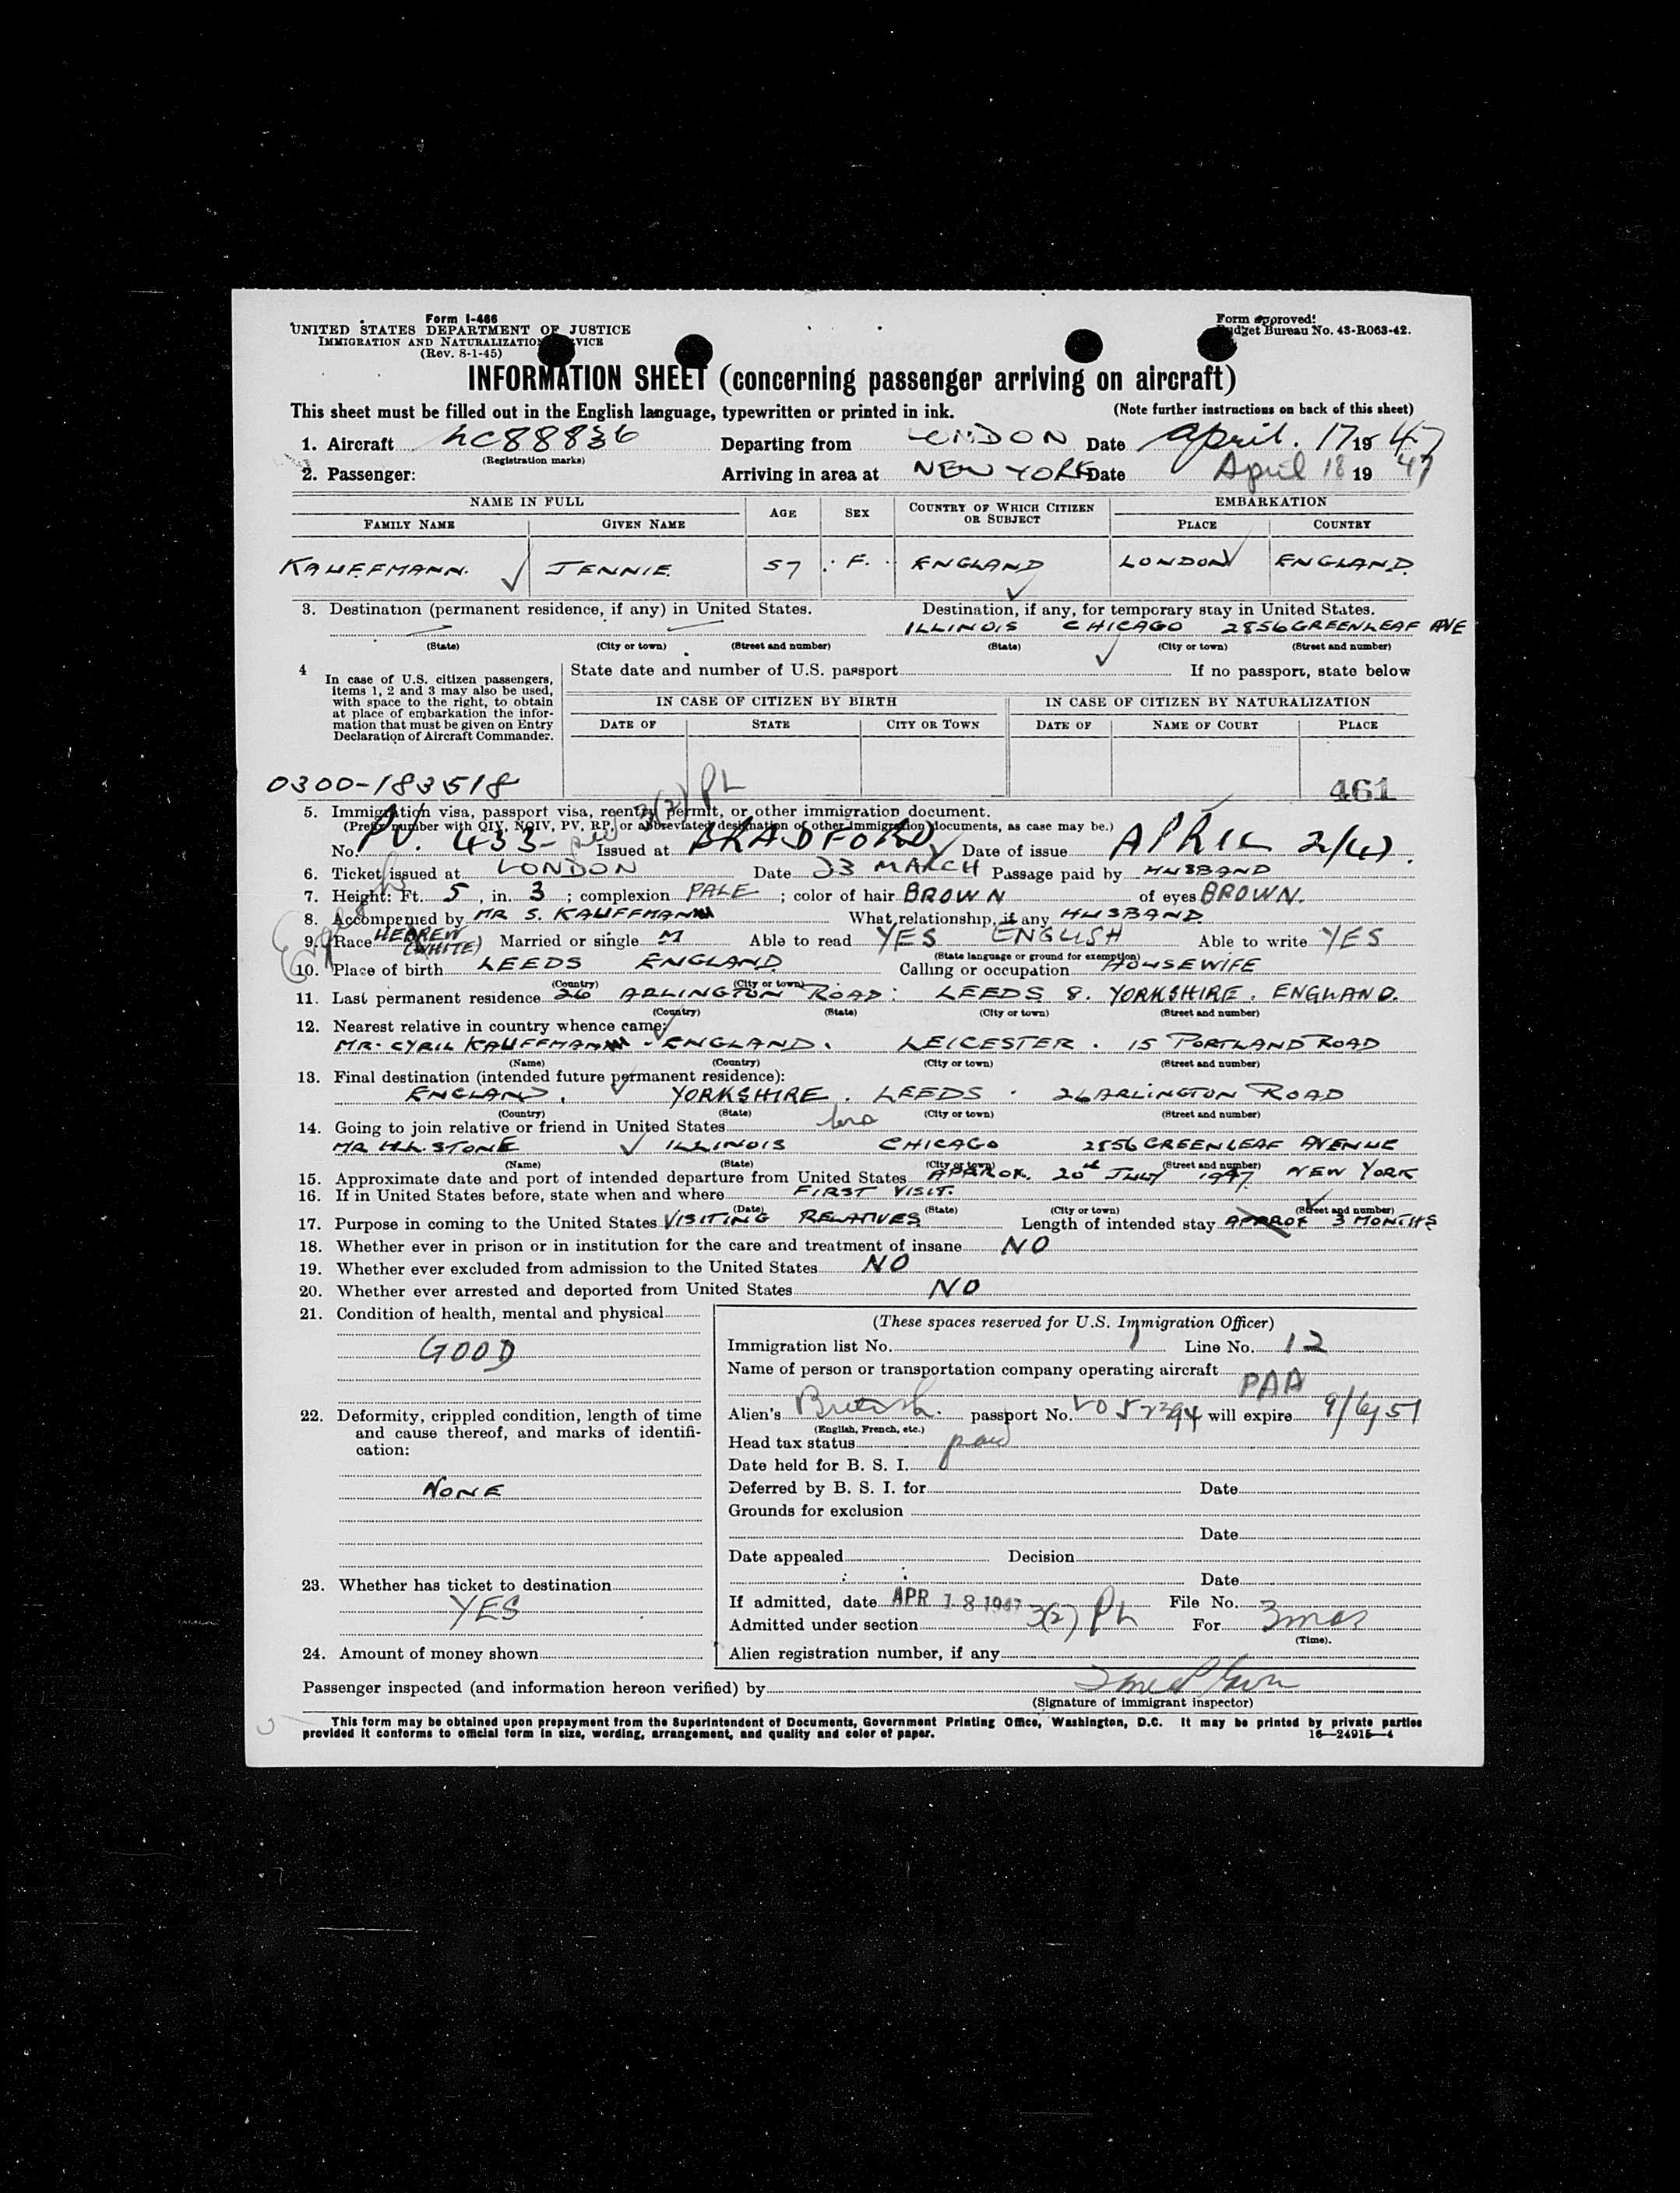 Form I-466
UNITED STATES DEPARTMENT OF JUSTICE
IMMIGRATION AND NATURALIZATION SERVICE
(Rev. 8-1-45)
Form approved!
Budget Bureau No. 43-R063-42.
INFORMATION SHEET (concerning passenger arriving on aircraft)
This sheet must be filled out in the English language, typewritten or printed in ink. (Note further instructions on back of this sheet)
1. Aircraft NC88836 Departing from LONDON Date April. 17 1947
(Registration marks)
2. Passenger: Arriving in area at NEW YORK Date April 18 1947
NAME IN FULL AGE SEX COUNTRY OF WHICH CITIZEN OR SUBJECT EMBARKATION
FAMILY NAME GIVEN NAME PLACE COUNTRY
KAUFFMANN. JENNIE. 57 F. ENGLAND LONDON ENGLAND.
3. Destination (permanent residence, if any) in United States. Destination, if any, for temporary stay in United States.
ILLINOIS CHICAGO 2856 GREENLEAF AVE
(State) (City or town) (Street and number) (State) (City or town) (Street and number)
4 In case of U.S. citizen passengers, items 1, 2 and 3 may also be used, with space to the right, to obtain at place of embarkation the information that must be given on Entry Declaration of Aircraft Commander.
State date and number of U.S. passport If no passport, state below
IN CASE OF CITIZEN BY BIRTH IN CASE OF CITIZEN BY NATURALIZATION
DATE OF STATE CITY OR TOWN DATE OF NAME OF COURT PLACE
0300-183518 3(2) PL 461
5. Immigration visa, passport visa, reentry permit, or other immigration document.
(Prefix number with QIV, NQIV, PV, RP, or abbreviated designation of other immigration documents, as case may be.)
No. PV. 433- Issued at BRADFORD Date of issue APRIL 2/47.
6. Ticket issued at LONDON Date 23 MARCH Passage paid by HUSBAND
7. Height: Ft. 5, in. 3; complexion PALE; color of hair BROWN of eyes BROWN.
8. Accompanied by MR S. KAUFFMANN What relationship, if any HUSBAND
9. Race HEBREW (WHITE) Married or single M Able to read YES ENGLISH Able to write YES
(State language or ground for exemption)
10. Place of birth LEEDS ENGLAND Calling or occupation HOUSEWIFE
(Country) (City or town)
11. Last permanent residence 26 ARLINGTON ROAD: LEEDS 8. YORKSHIRE. ENGLAND.
(Country) (State) (City or town) (Street and number)
12. Nearest relative in country whence came:
MR. CYRIL KAUFFMANN - ENGLAND. LEICESTER. 15 PORTLAND ROAD
(Name) (Country) (City or town) (Street and number)
13. Final destination (intended future permanent residence):
ENGLAND. YORKSHIRE. LEEDS. 26 ARLINGTON ROAD
(Country) (State) (City or town) (Street and number)
14. Going to join relative or friend in United States
MR STONE ILLINOIS CHICAGO 2856 GREENLEAF AVENUE
(Name) (State) (City or town) (Street and number)
15. Approximate date and port of intended departure from United States APPROX. 20th JULY 1947. NEW YORK
16. If in United States before, state when and where FIRST VISIT.
(Date) (State) (City or town) (Street and number)
17. Purpose in coming to the United States VISITING RELATIVES Length of intended stay APPROX 3 MONTHS
18. Whether ever in prison or in institution for the care and treatment of insane NO
19. Whether ever excluded from admission to the United States NO
20. Whether ever arrested and deported from United States NO
21. Condition of health, mental and physical
GOOD
22. Deformity, crippled condition, length of time and cause thereof, and marks of identification:
NONE
23. Whether has ticket to destination
YES
24. Amount of money shown
(These spaces reserved for U.S. Immigration Officer)
Immigration list No. 1 Line No. 12
Name of person or transportation company operating aircraft
PAA
Alien's British. passport No. will expire 9/6/51
(English, French, etc.)
Head tax status paid
Date held for B. S. I.
Deferred by B. S. I. for Date
Grounds for exclusion
Date
Date appealed Decision
Date
If admitted, date APR 18 1947 File No.
Admitted under section 3(2) PL For 3 mos
(Time).
Alien registration number, if any
Passenger inspected (and information hereon verified) by
(Signature of immigrant inspector)
This form may be obtained upon prepayment from the Superintendent of Documents, Government Printing Office, Washington, D.C. It may be printed by private parties
provided it conforms to official form in size, wording, arrangement, and quality and color of paper. 16—24915-4